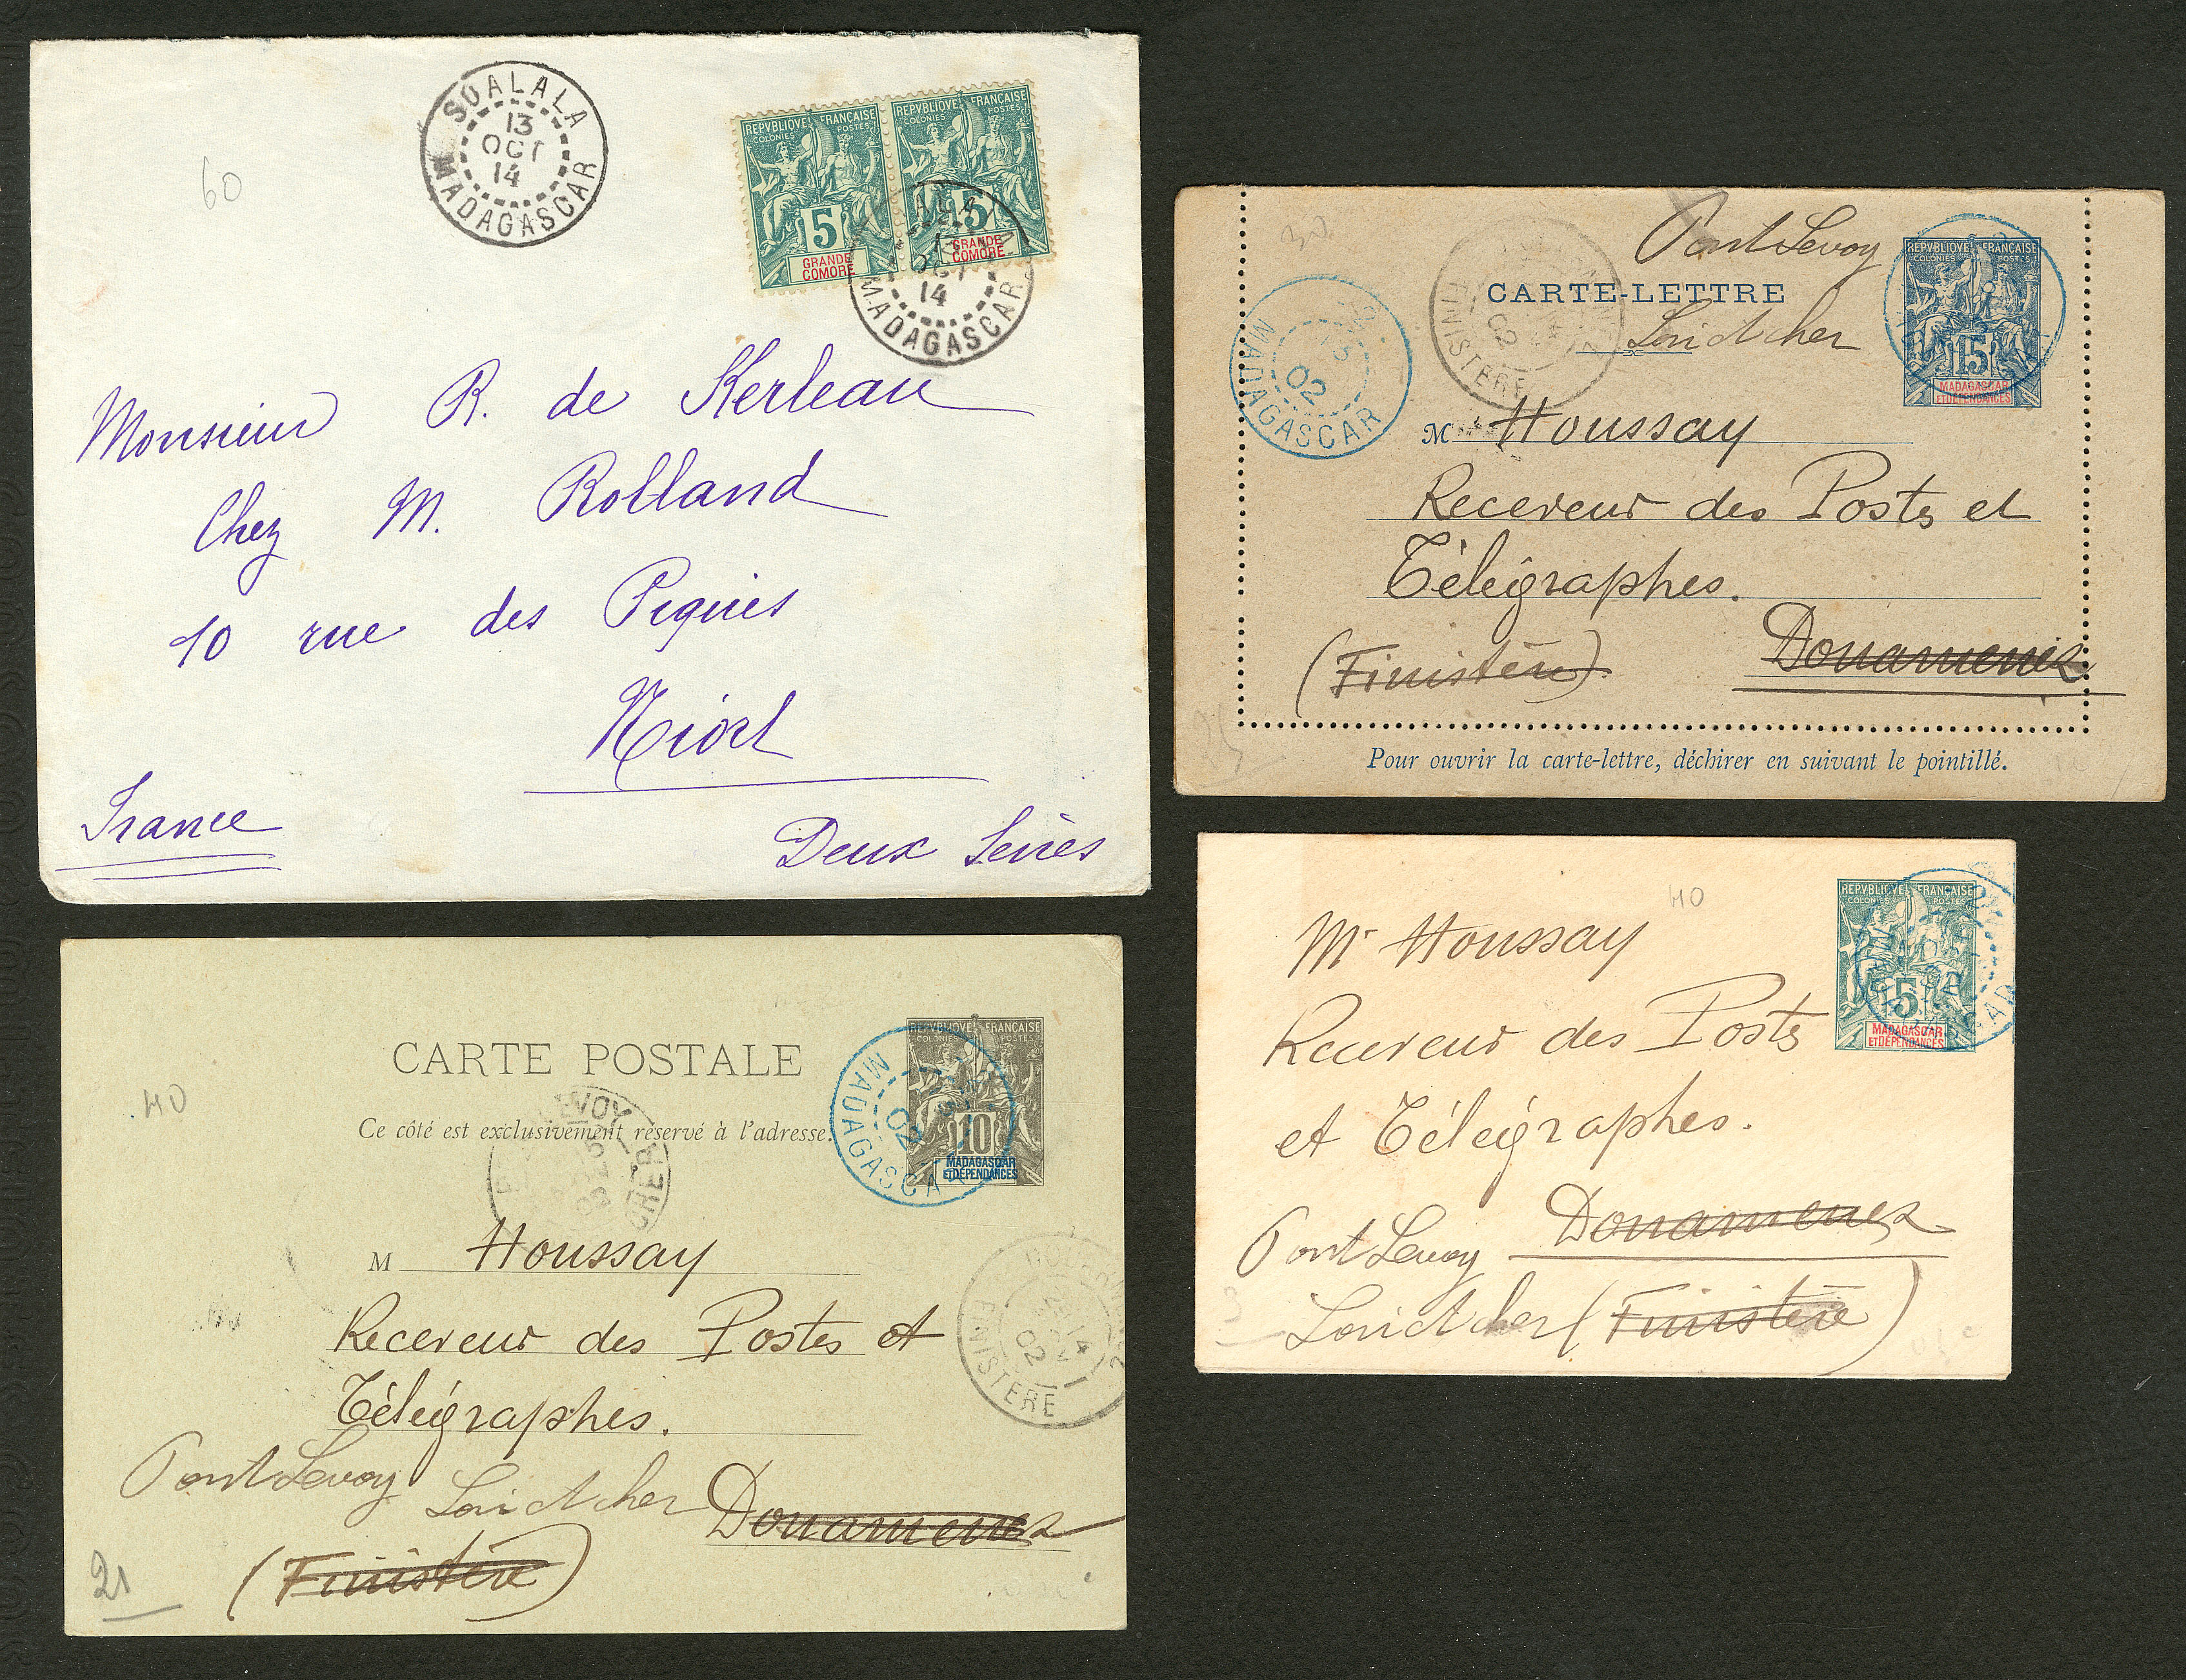 SOALALA
13
OCT
14
MADAGASCAR
60
REPVBLIQVE FRANÇAISE
COLONIES POSTES
5
GRANDE
COMORE
REPVBLIQVE FRANÇAISE
COLONIES POSTES
5
GRANDE
COMORE
OCT
14
MADAGASCAR
Monsieur R. de Kerleau
Chez M. Rolland
10 rue des
Niort
France
Deux Sèvres
30
Pont Levoy
CARTE-LETTRE
Loir et cher
REPVBLIQVE FRANÇAISE
COLONIES POSTES
15
MADAGASCAR
ET DÉPENDANCES
02
MADAGASCAR
02
FINISTERE
M Houssay
Receveur des Postes et
Télégraphes.
(Finistère) Douarnenez
Pour ouvrir la carte-lettre, déchirer en suivant le pointillé.
CARTE POSTALE
Ce côté est exclusivement réservé à l'adresse.
REPVBLIQVE FRANÇAISE
COLONIES POSTES
10
MADAGASCAR
ET DÉPENDANCES
02
MADAGASCA
40
LEVOY
CHER
M Houssay
Receveur des Postes et
Télégraphes.
02
FINISTERE
Pont Levoy Loir et cher Douarnenez
(Finistère)
21
40
REPVBLIQVE FRANÇAISE
COLONIES POSTES
5
MADAGASCAR
ET DÉPENDANCES
Mr Houssay
Receveur des Postes
et Télégraphes.
Pont Levoy Douarnenez
Loir et cher (Finistère)